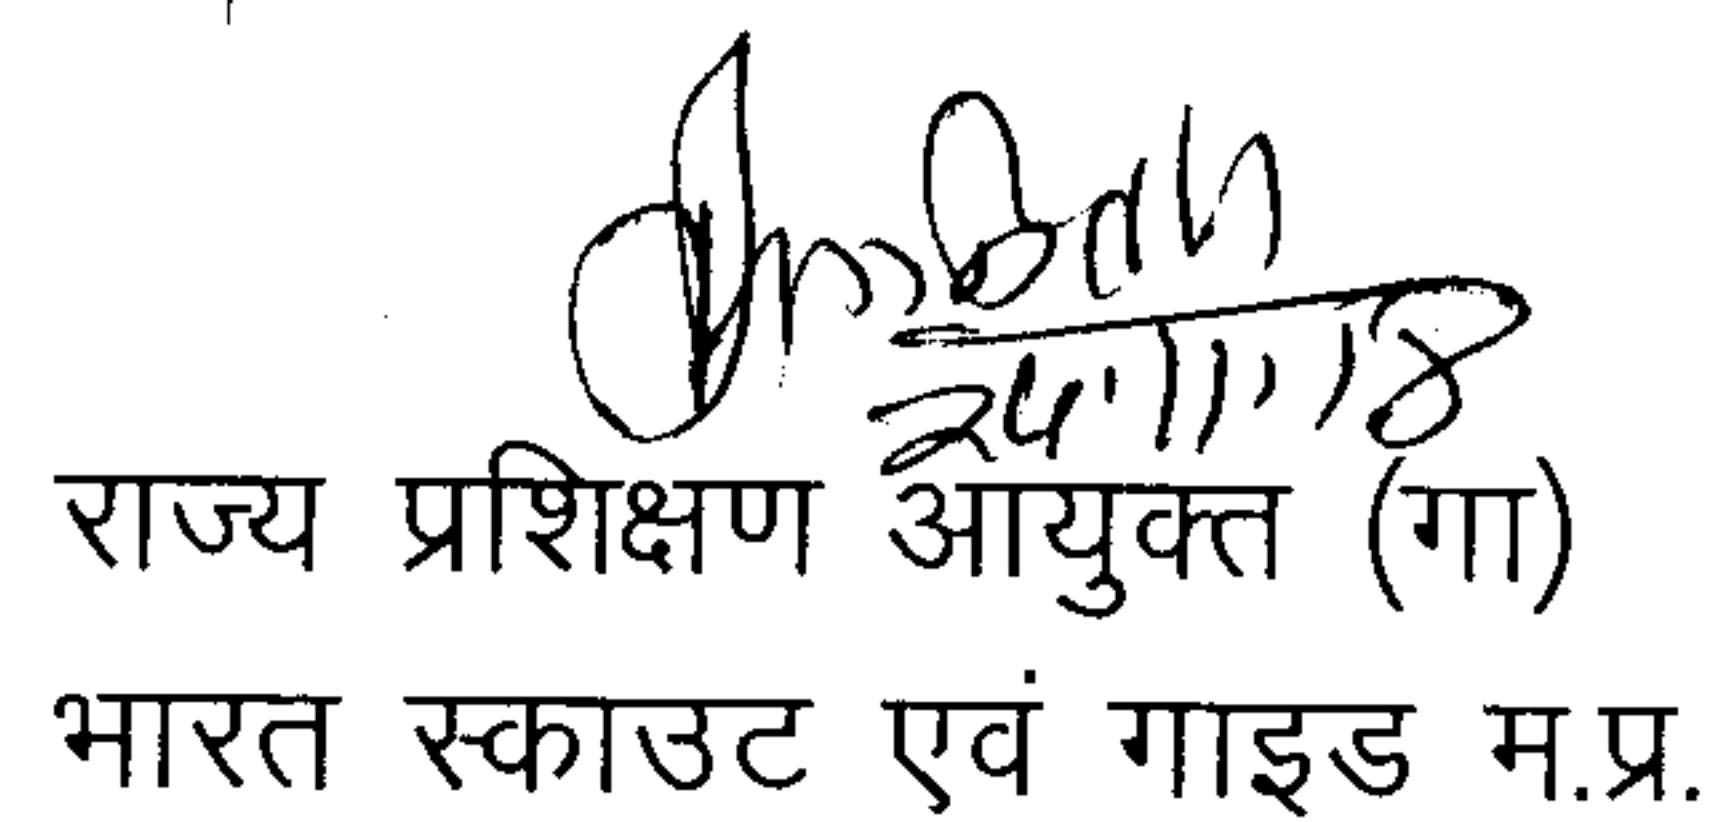 राज्य प्रशिक्षण आयुक्त (गा)
भारत स्काउट एवं गाइड म.प्र.